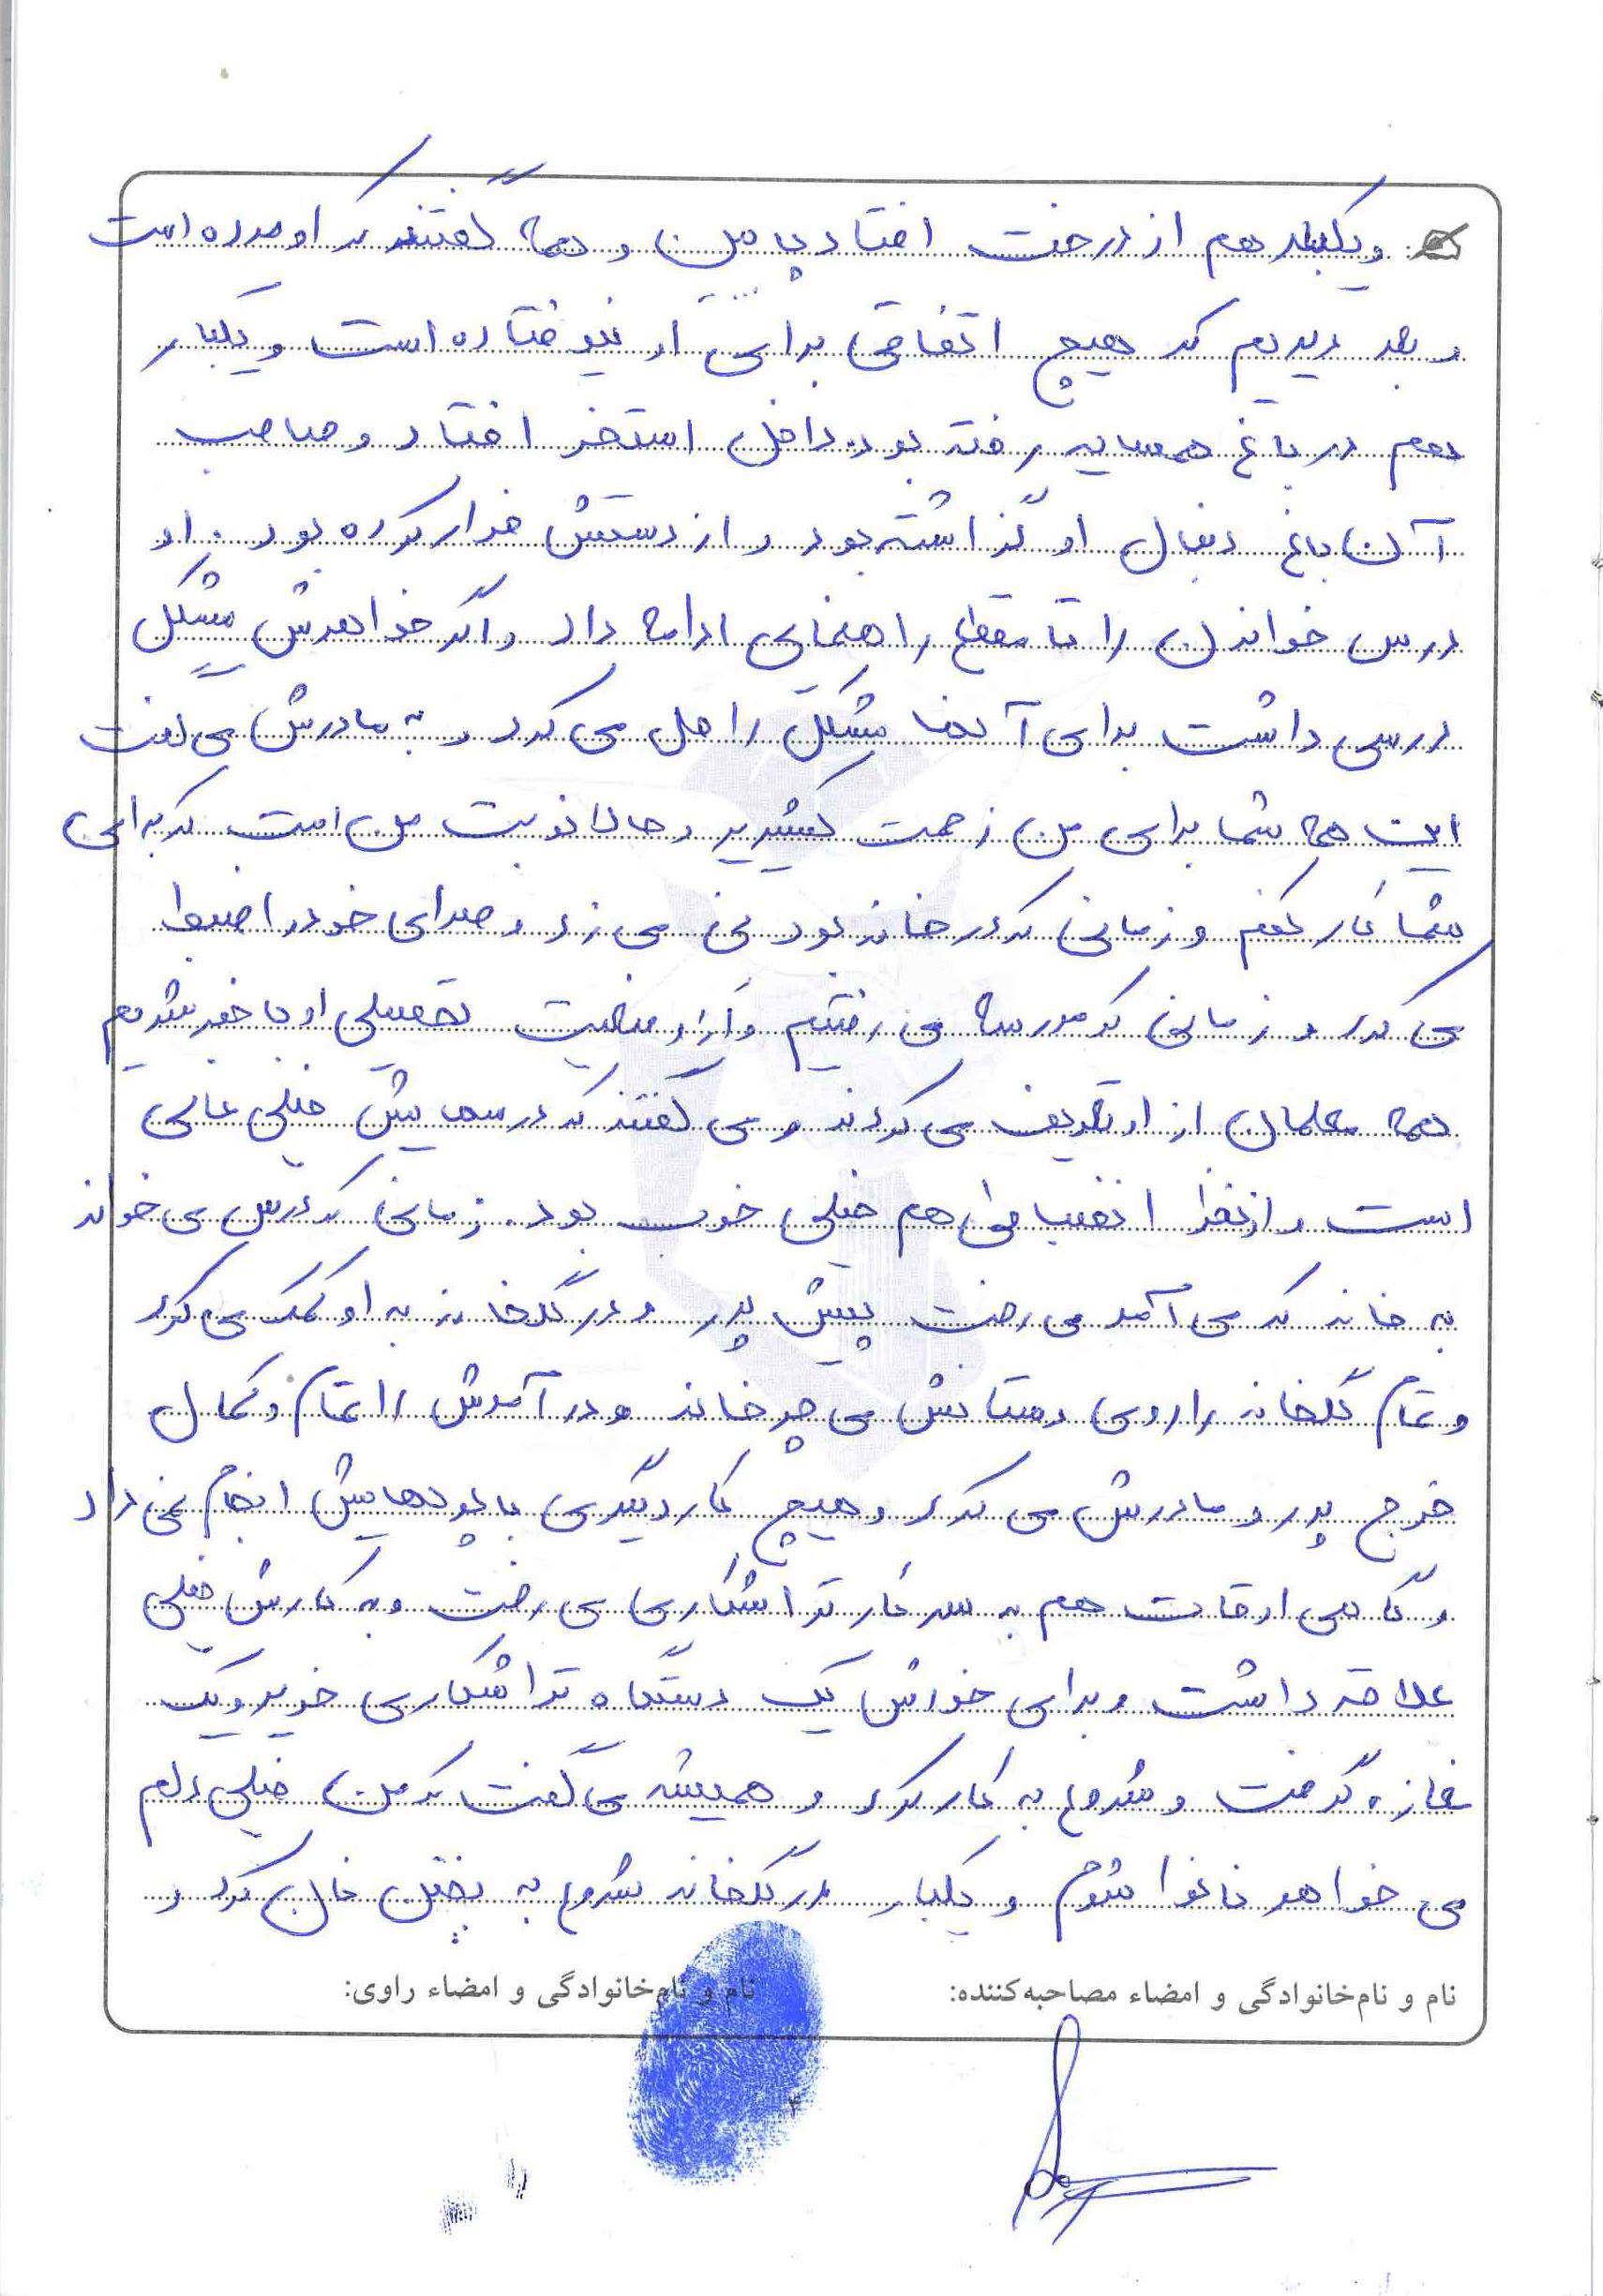 و یکبار هم از درخت افتاد پایین و همه گفتند که او مرده است
و بعد دیدیم که هیچ اتفاقی برای او نیوفتاده است و یکبار
هم در باغ همسایه رفته بود. داخل استخر افتاد و صاحب
آن باغ دنبال او گذاشته بود و از دستش فرار کرده بود. او
درس خواندن را تا مقطع راهنمایی ادامه داد و اگر خواهرش مشکل
درسی داشت برای آنها مشکل را حل می کرد و به مادرش می گفت
این همه شما برای من زحمت کشیدید و حالا نوبت من است که برای
شما کار کنم و زمانی که در خانه بود نی می زد و صدای خود را ضبط
می کرد و زمانی که مدرسه می رفتیم و از وضعیت تحصیلی او با خبر شدیم
همه معلمان از او تعریف می کردند و می گفتند که درسهایش خیلی عالی
است و از نظر انضباطی هم خیلی خوب بود. زمانی که درس می خواند
به خانه که می آمد می رفت پیش پدر و در گلخانه به او کمک می کرد
و تمام گلخانه را روی دستانش می چرخاند و درآمدش را تمام و کمال
خرج پدر و مادرش می کرد و هیچ کار دیگری با پولهایش انجام نمی داد
و گاهی اوقات هم به سر کار تراشکاری می رفت و به کارش خیلی
علاقه داشت و برای خودش یک دستگاه تراشکاری خرید و یک
مغازه گرفت و شروع به کار کرد و همیشه می گفت که من خیلی دلم
می خواهد نانوا شوم و یکبار در گلخانه شروع به پختن نان کرد و
نام و نام‌خانوادگی و امضاء مصاحبه‌کننده: نام و نام‌خانوادگی و امضاء راوی:
۴